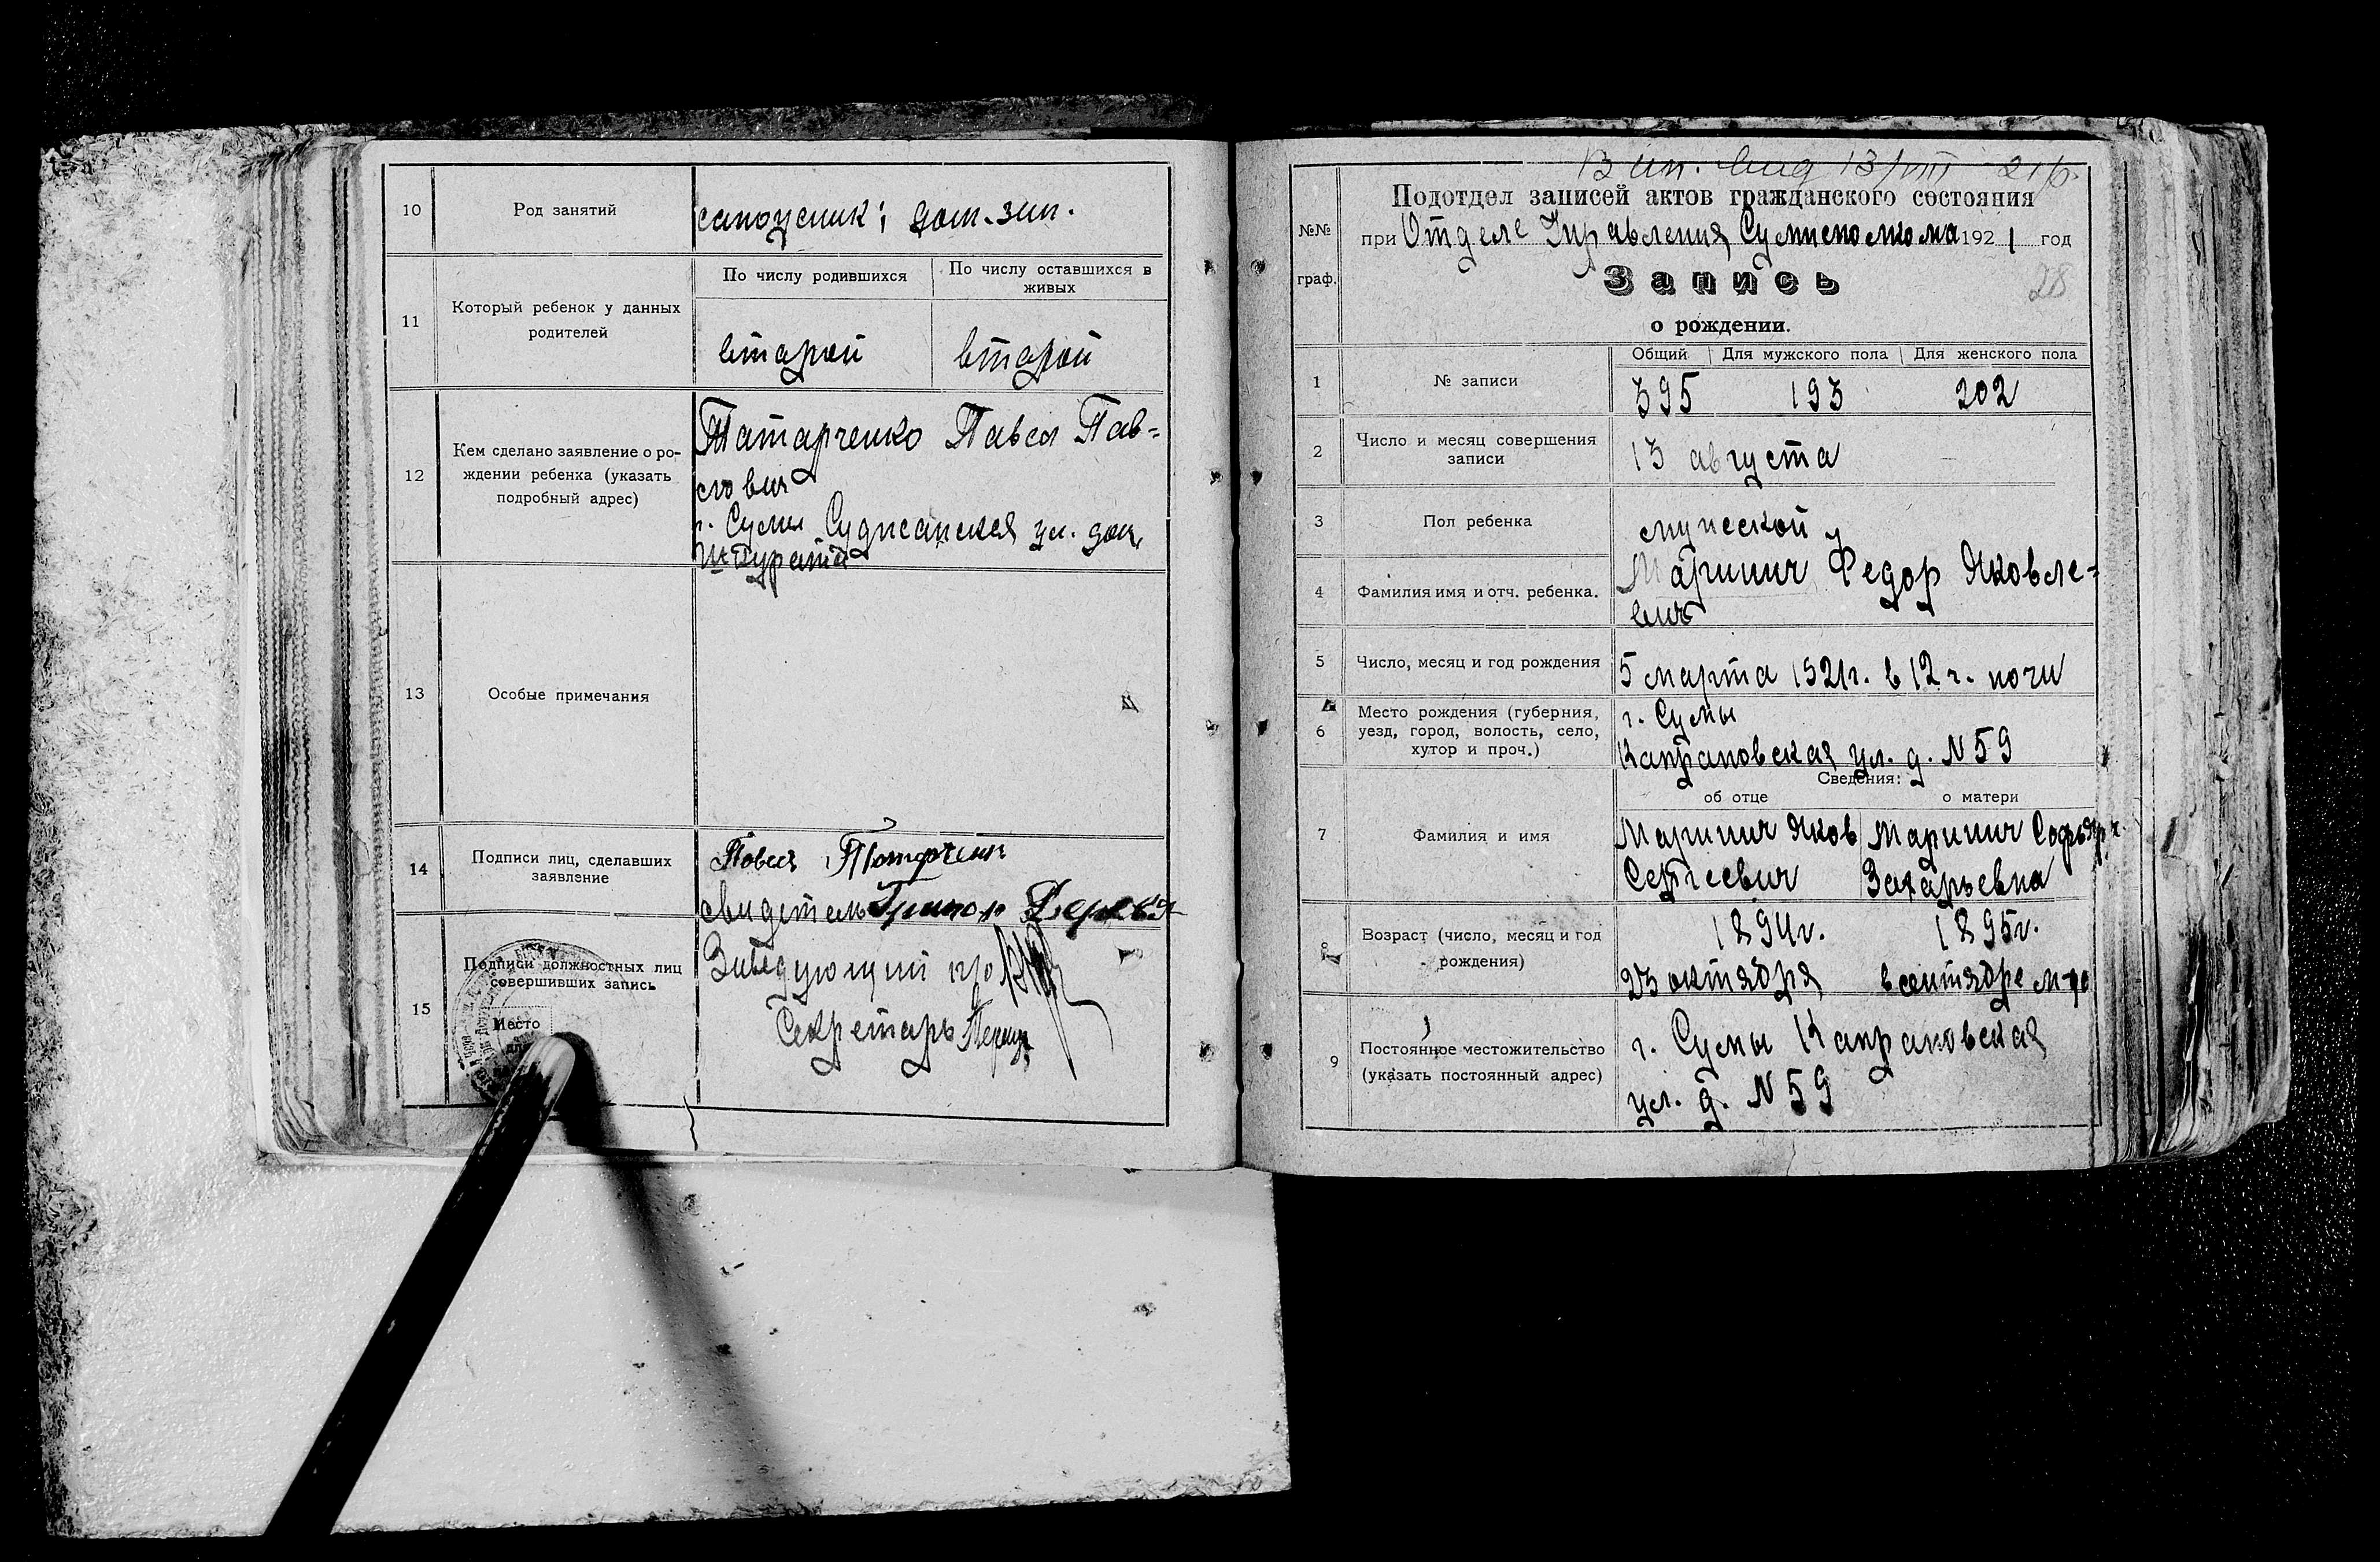 10
Род занятий
сапожник; дом. зан.
11
Который ребенок у данных
родителей
По числу родившихся
По числу оставшихся в
живых
второй
второй
12
Кем сделано заявление о ро-
ждении ребенка (указать
подробный адрес)
Татарченко Павел Пав=
лович
г. Сумы Суджанская ул. дом
13
Особые примечания
14
Подписи лиц, сделавших
заявление
Павел Татарченко
свидетель Григор
15
Подписи должностных лиц
совершивших запись
Место
для
Заведующий
Секретарь
Вып. 13/VIII 21
Подотдел записей актов гражданского состояния
№№
граф.
при Отделе Управления Сумисполкома 1921 год
Запись
28
о рождении.
1
№ записи
Общий
Для мужского пола
Для женского пола
395
193
202
2
Число и месяц совершения
записи
13 августа
3
Пол ребенка
мужской
4
Фамилия имя и отч. ребенка.
Маринич Федор Яковле=
вич
5
Число, месяц и год рождения
5 марта 1921г. в 12 ч. ночи
6
Место рождения (губерния,
уезд, город, волость, село,
хутор и проч.)
г. Сумы
Капрановская ул. д. N 59
Сведения:
об отце
о матери
7
Фамилия и имя
Маринич Яков
Сергеевич
Маринич Софья
Захарьевна
8
Возраст (число, месяц и год
рождения)
1894г.
23 октября
1895г.
в сентябре м-це
9
Постоянное местожительство
(указать постоянный адрес)
г. Сумы Капрановская
ул. д. N 59